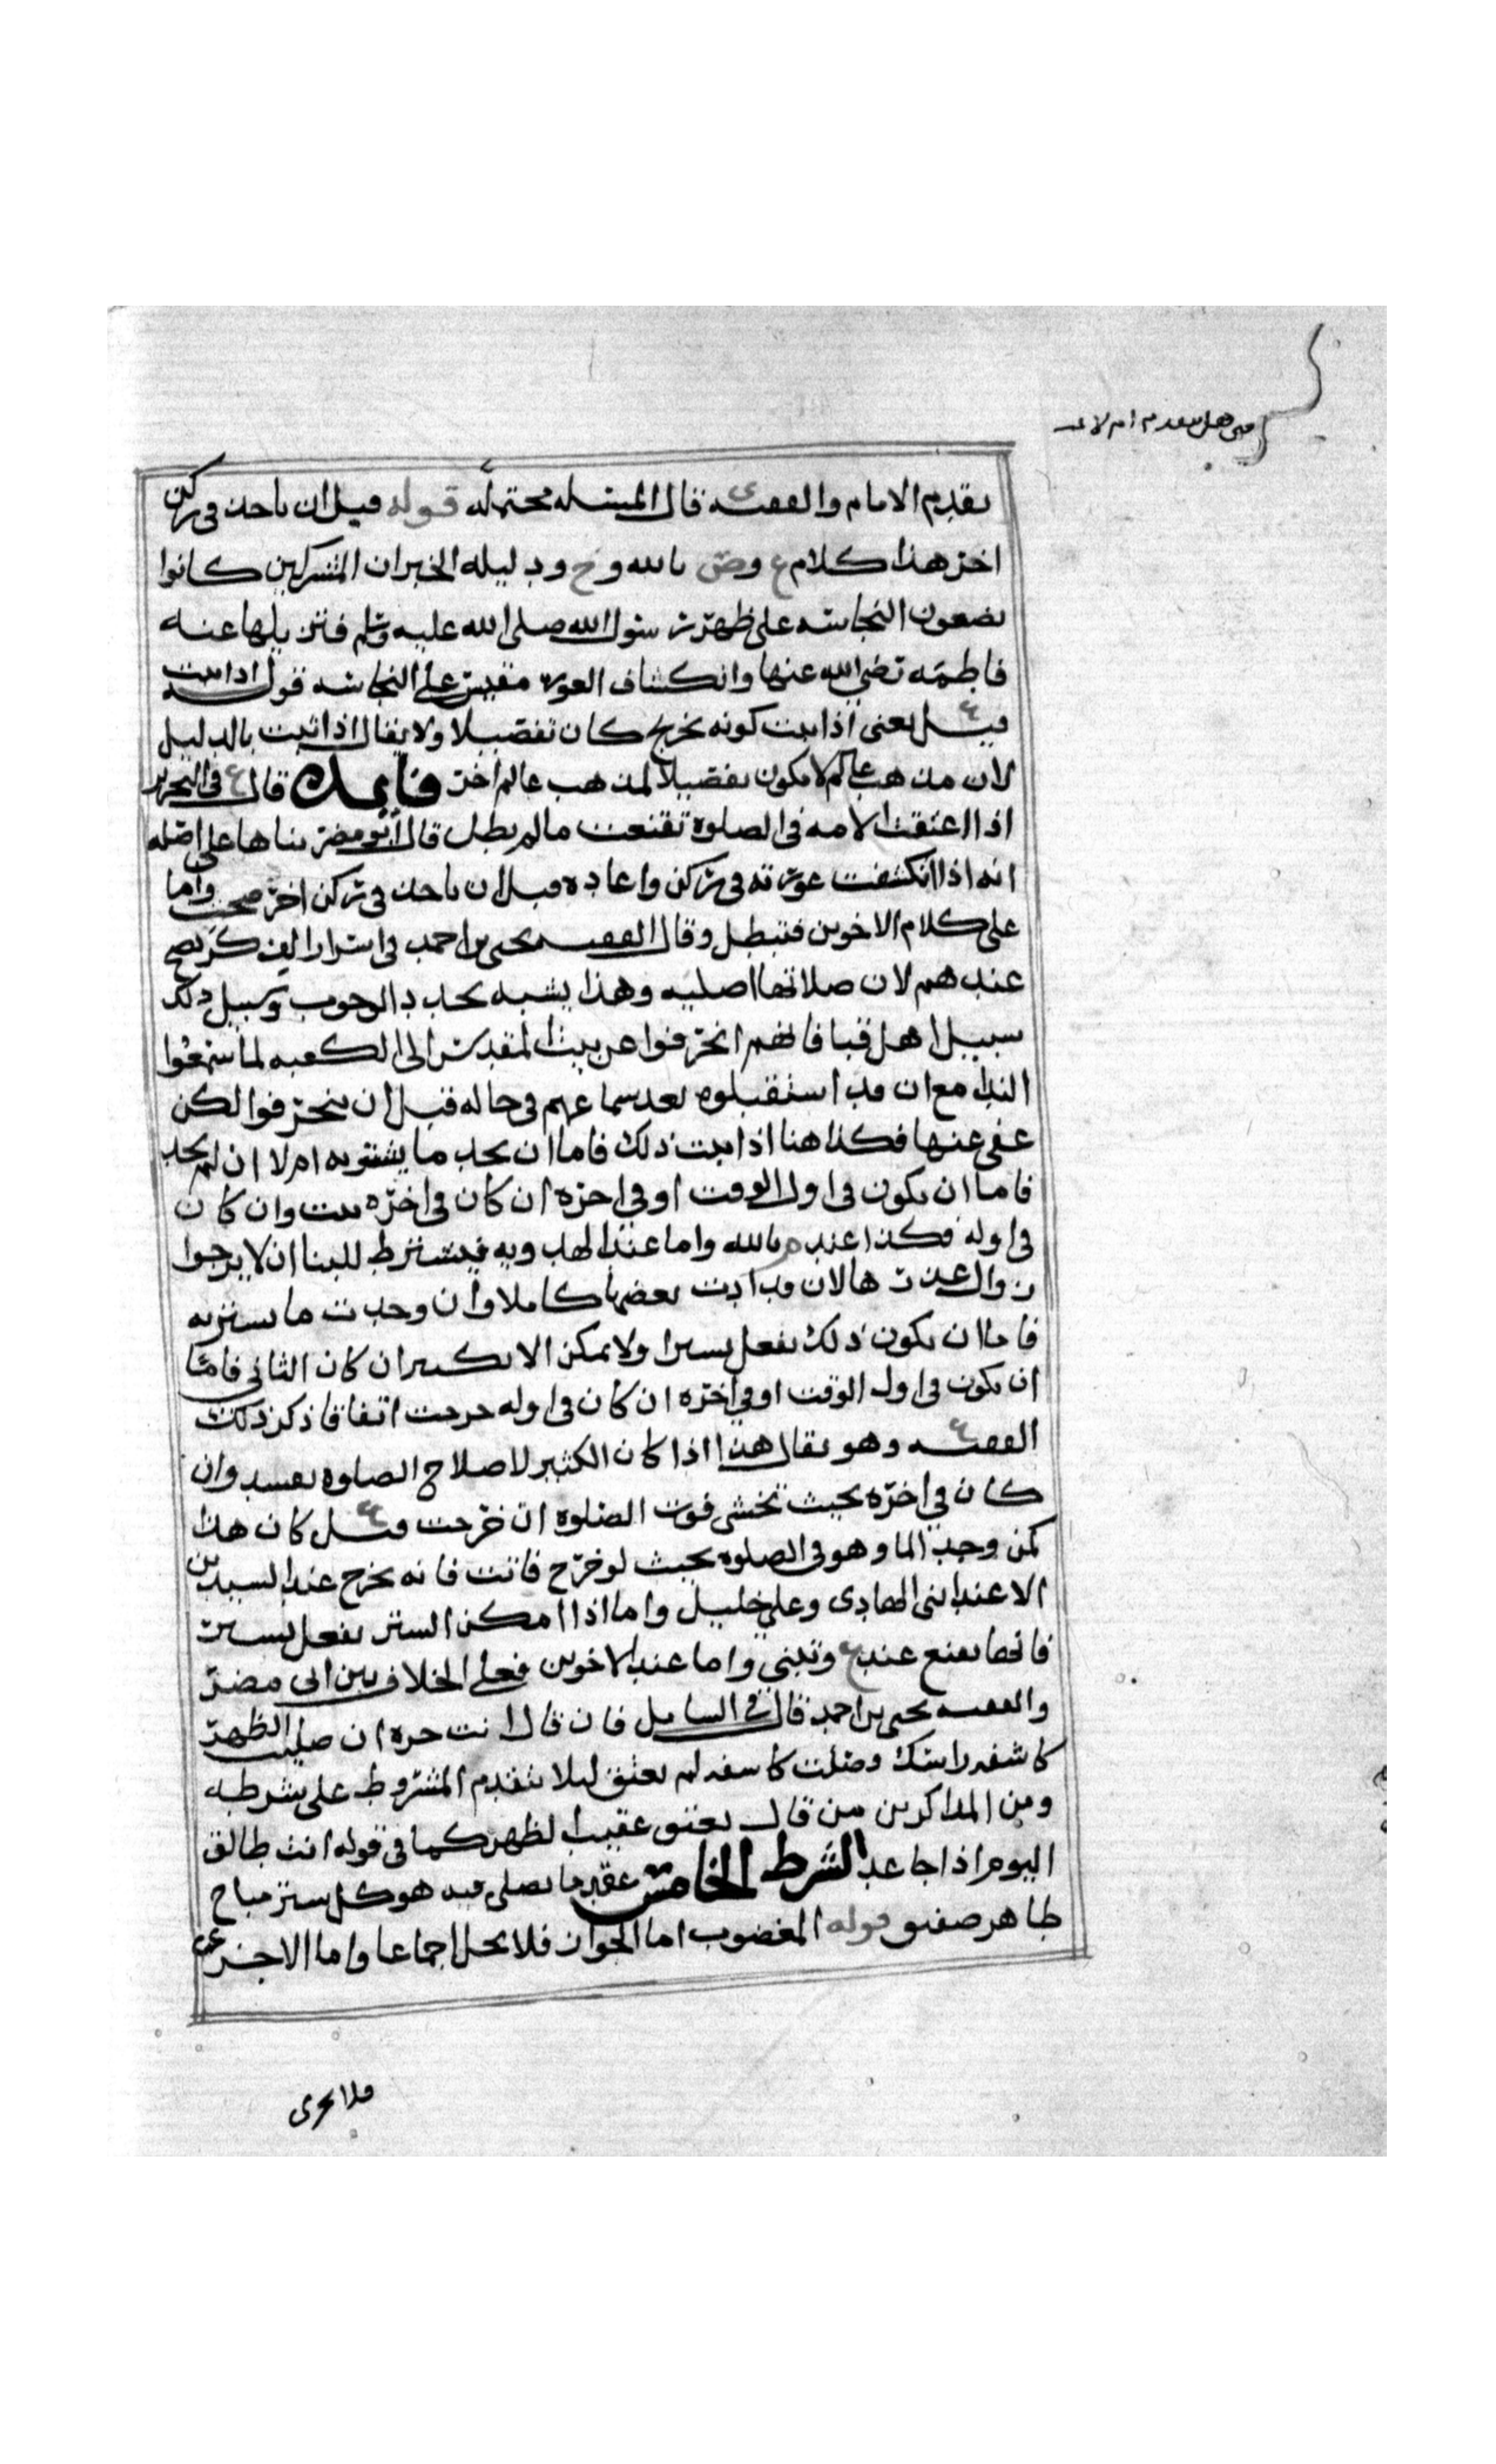 هل يتقدم ام لا
يقدم الامام والفقيه ى قال المسئله محتمله قوله قبل ان ياخذ في ركن
اخر هذا كلام ع وص بالله وح ودليله الخبر ان المشركين كانوا
يضعون النجاسه على ظهر رسول الله صلى الله عليه وسلم فتزيلها عنه
فاطمه رضي الله عنها وانكشاف العوره مقيس على النجاسه قوله اذا ثبت
قيل ع يعني اذا ثبت كونه تخريج كان تفصيلا ولا يقال اذا ثبت بالدليل
لان مذهب عالم لا يكون تفصيلا لمذهب عالم اخر فايده قال ع في التحرير
اذا اعتقت الامه في الصلوه تقنعت ما لم يطل قال ابو مضر بناها على اصله
انه اذا انكشفت عورته في ركن واعاده قبل ان ياخذ في ركن اخر صحت واما
على كلام الاخوين فتبطل وقال الفقيه يحيى بن احمد في اسرار الفكر يصح
عندهم لان صلاتها اصليه وهذا يشبه تجدد الوجوب وسبيل ذلك
سبيل اهل قبا فانهم انحرفوا عن بيت المقدس الى الكعبه لما سمعوا
الندا مع ان قد استقبلوه بعد سماعهم في حاله قبل ان ينحرفوا لكن
عفي عنها فكذا هنا اذا ثبت ذلك فاما ان يجد ما يستتر به ام لا ان لم يجد
فاما ان يكون في اول الوقت او في اخره ان كان في اخره بنت وان كان
في اوله فكذا عند م بالله واما عند الهدويه فيشترط للبنا ان لا يرجوا
زوال عذرها لان قد ادت بعضها كاملا وان وجدت ما يستتر به
فاما ان يكون ذلك بفعل يسير او لا يمكن الا بكثير ان كان الثاني فاما
ان يكون في اول الوقت او في اخره ان كان في اوله خرجت اتفاقا ذكر ذلك
الفقيه ع وهو يقال هذا اذا كان الكثير لاصلاح الصلوه يفسد وان
كان في اخره بحيث تخشى فوت الصلوه ان خرجت قيل ع كان هذا
كمن وجد الما وهو في الصلوه بحيث لو خرج فاتت فانه يخرج عند السيدين
الا عند ابني الهادي وعلي خليل واما اذا امكن الستر بفعل يسير
فانها تقنع عند ع وتبني واما عند الاخوين فعلى الخلاف بين ابي مضر
والفقيه يحيى بن احمد قال في الشامل فان قال انت حره ان صليت الظهر
كاشفه راسك وصلت كاشفه لم تعتق ليلا يتقدم المشروط على شرطه
ومن المذاكرين من قال يعتق عقيب الظهر كما في قوله انت طالق
اليوم اذا جا غد الشرط الخامس عقد ما يصلى فيه هو كل ستر مباح
طاهر صفيق قوله المغصوب اما الجواز فلا يحل اجماعا واما الاجزى
فلا يجزى